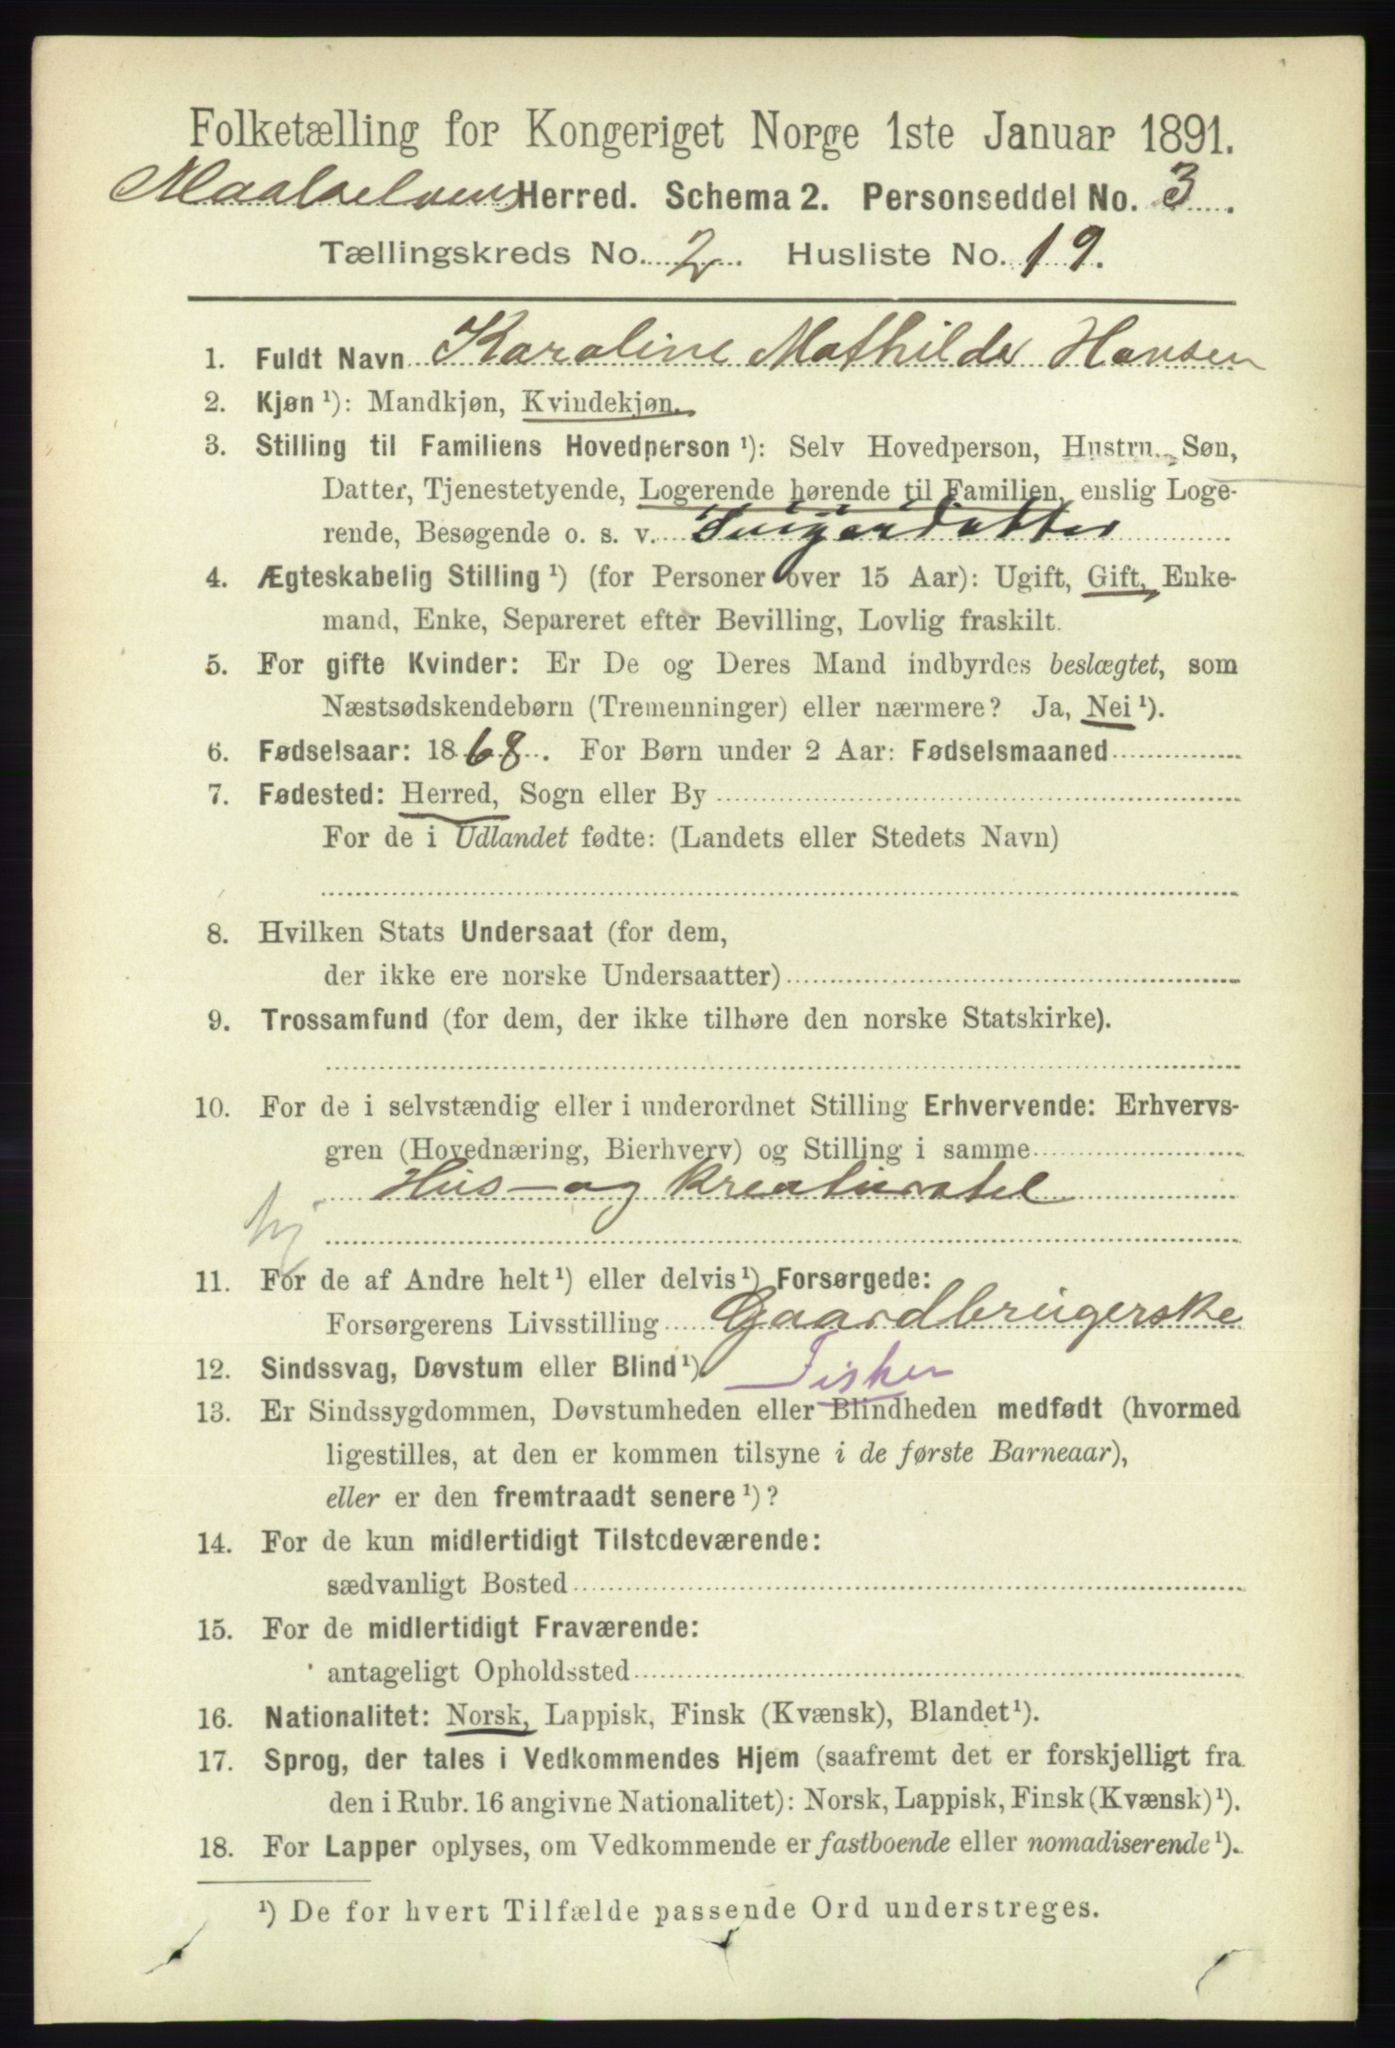 Folketælling for Kongeriget Norge 1ste Januar 1891.
Maalselvens Herred. Schema 2. Personseddel No. 3.
Tællingskreds No. 2. Husliste No. 19.
1. Fuldt Navn Karoline Mathilde Hansen
2. Kjøn ¹): Mandkjøn, Kvindekjøn.
3. Stilling til Familiens Hovedperson ¹): Selv Hovedperson, Hustru, Søn,
Datter, Tjenestetyende, Logerende hørende til Familien, enslig Loge-
rende, Besøgende o. s. v. Svigerdatter
4. Ægteskabelig Stilling ¹) (for Personer over 15 Aar): Ugift, Gift, Enke-
mand, Enke, Separeret efter Bevilling, Lovlig fraskilt.
5. For gifte Kvinder: Er De og Deres Mand indbyrdes beslægtet, som
Næstsødskendebørn (Tremenninger) eller nærmere? Ja, Nei ¹).
6. Fødselsaar: 1868. For Børn under 2 Aar: Fødselsmaaned
7. Fødested: Herred, Sogn eller By
For de i Udlandet fødte: (Landets eller Stedets Navn)
8. Hvilken Stats Undersaat (for dem,
der ikke ere norske Undersaatter)
9. Trossamfund (for dem, der ikke tilhøre den norske Statskirke).
10. For de i selvstændig eller i underordnet Stilling Erhvervende: Erhvervs-
gren (Hovednæring, Bierhverv) og Stilling i samme
Hus- og kreaturstel
hj
11. For de af Andre helt ¹) eller delvis ¹) Forsørgede:
Forsørgerens Livsstilling Gaardbrugerske
12. Sindssvag, Døvstum eller Blind ¹). Fisker
13. Er Sindssygdommen, Døvstumheden eller Blindheden medfødt (hvormed
ligestilles, at den er kommen tilsyne i de første Barneaar),
eller er den fremtraadt senere ¹)?
14. For de kun midlertidigt Tilstedeværende:
sædvanligt Bosted
15. For de midlertidigt Fraværende:
antageligt Opholdssted
16. Nationalitet: Norsk, Lappisk, Finsk (Kvænsk), Blandet ¹).
17. Sprog, der tales i Vedkommendes Hjem (saafremt det er forskjelligt fra
den i Rubr. 16 angivne Nationalitet): Norsk, Lappisk, Finsk (Kvænsk) ¹).
18. For Lapper oplyses, om Vedkommende er fastboende eller nomadiserende ¹).
¹) De for hvert Tilfælde passende Ord understreges.